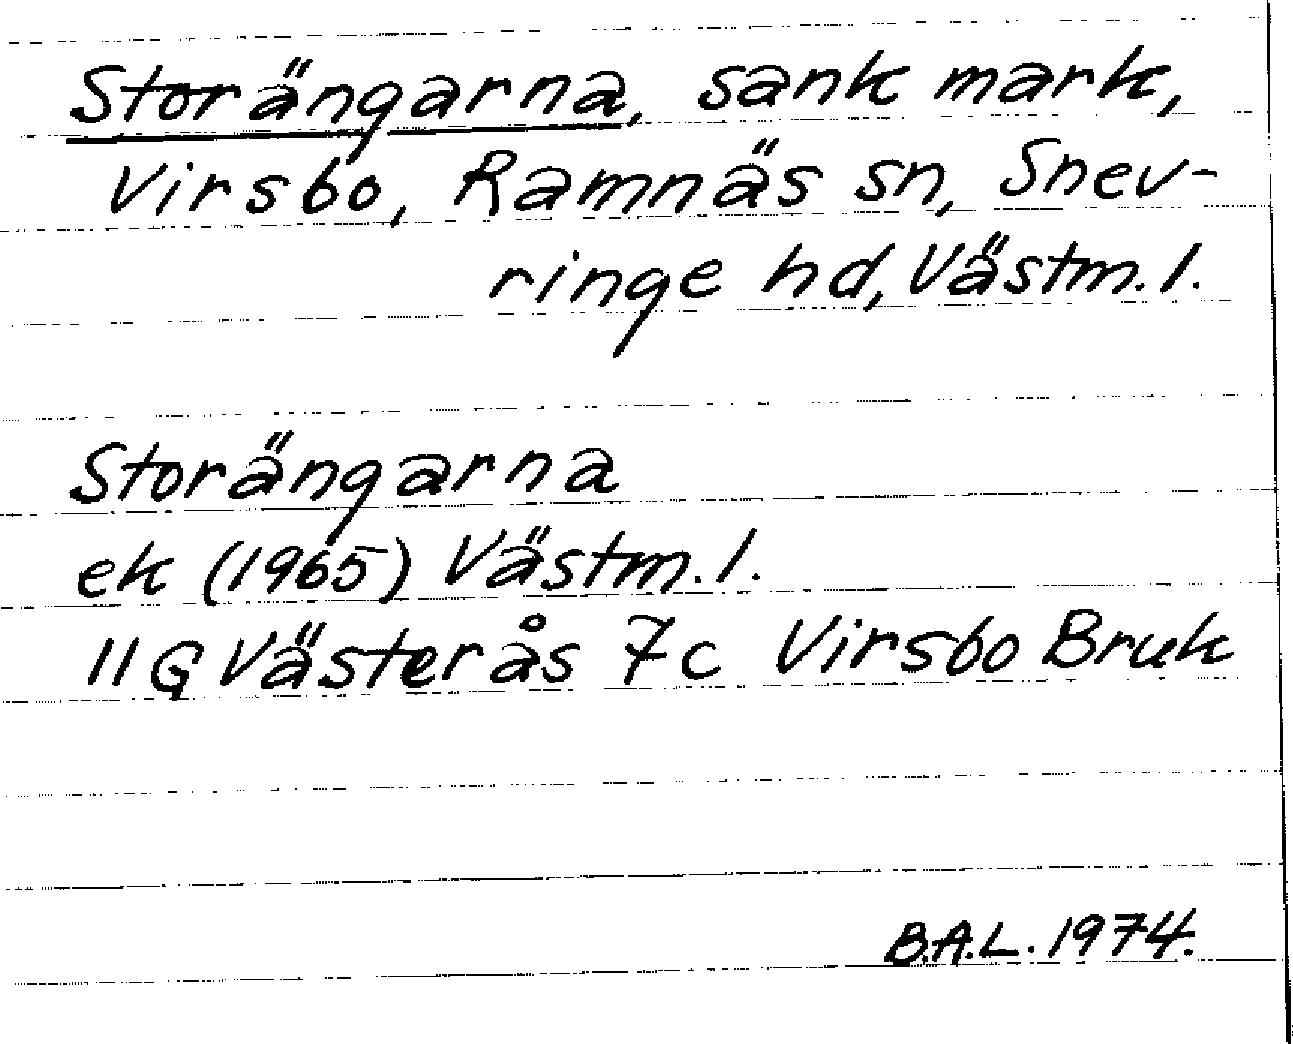 Storängarna, sank mark,
Virsbo, Ramnäs sn, Snev-
ringe hd, Västm. l.
Storängarna
ek (1965) Västm. l.
11G Västerås 7c Virsbo Bruk
B.A.L. 1974.